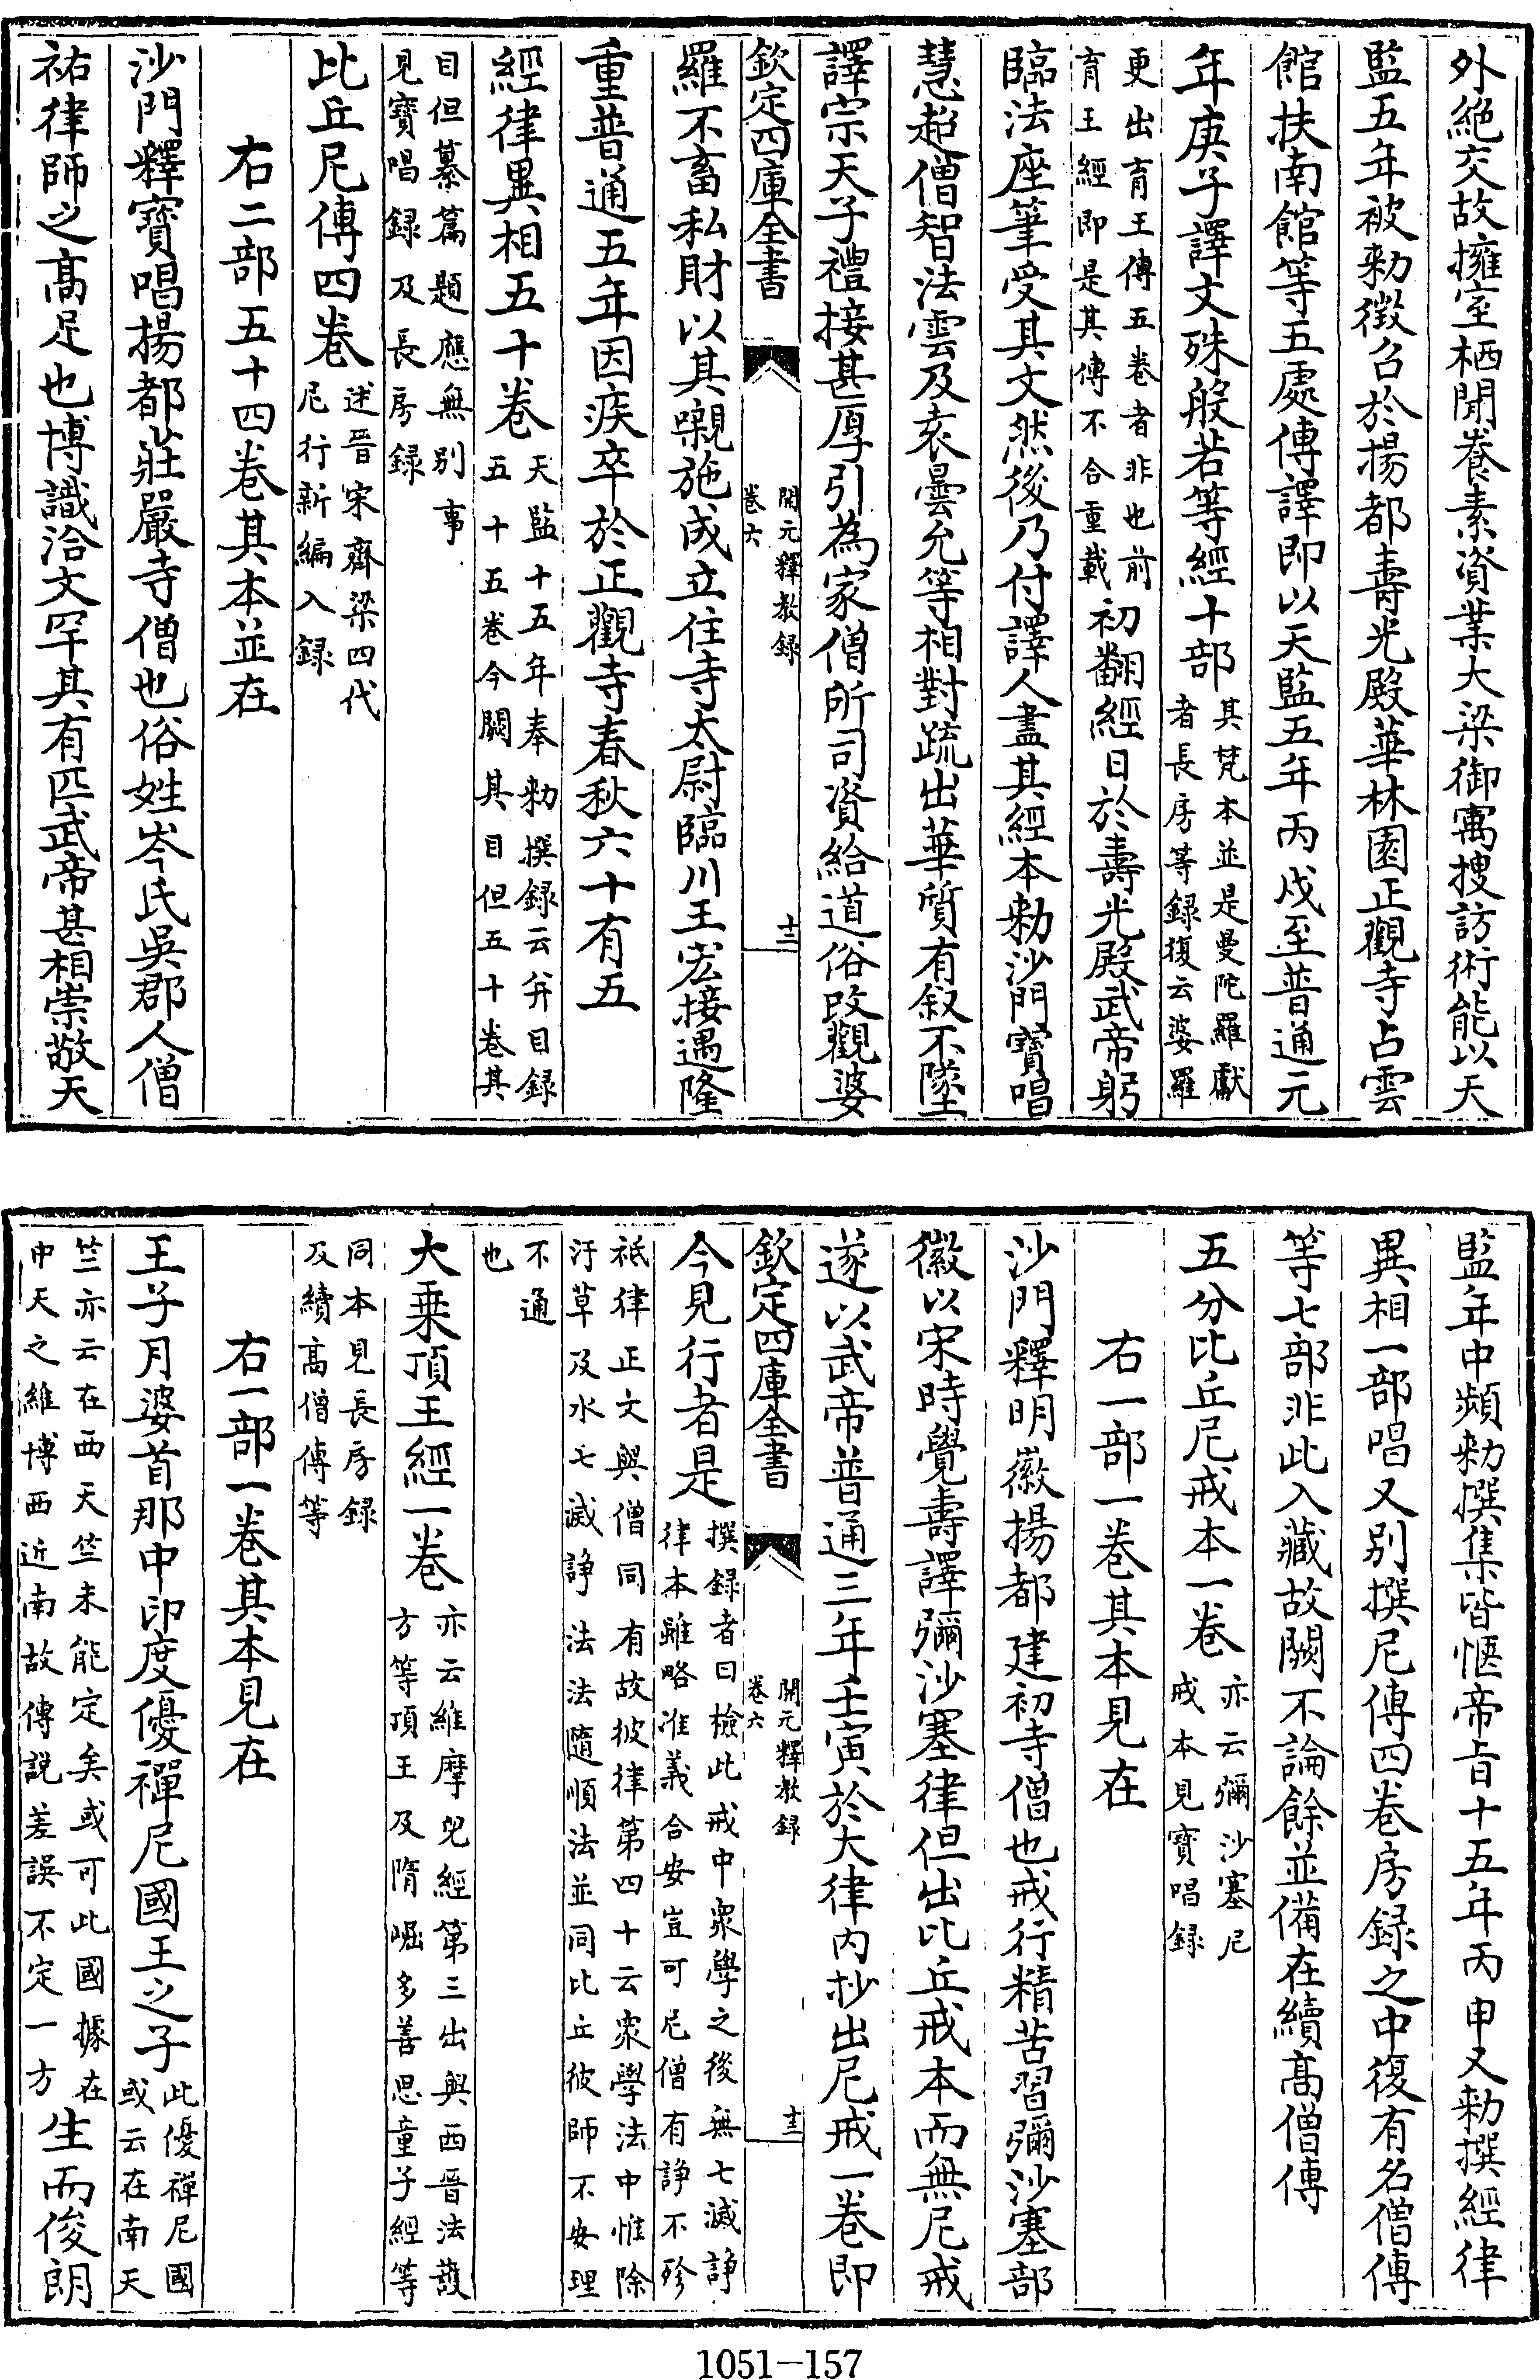 外絶交故擁室栖閒養素資業大梁御㝢搜訪術能以天
監五年被勅徴召於揚都壽光殿華林園正觀寺占雲
館扶南館等五處傳譯即以天監五年丙戌至普通元
年庚子譯文殊般若等經十部其梵本並是曼陀羅獻
者長房等録復云婆羅
更出育王傳五卷者非也前
育王經即是其傳不合重載初翻經日於壽光殿武帝躬
臨法座筆受其文然後乃付譯人盡其經本勅沙門寶唱
慧超僧智法雲及袁曇允等相對疏出華質有叙不墜
譯宗天子禮接甚厚引為家僧所司資給道俗改觀婆
欽定四庫全書
開元釋教録
卷六
十二
羅不畜私財以其嚫施成立住寺太尉臨川王宏接遇隆
重普通五年因疾卒於正觀寺春秋六十有五
經律異相五十卷天監十五年奉勅撰録云并目録
五十五卷今闕其目但五十卷其
目但纂篇題應無别事
見寶唱録及長房録
比丘尼傳四卷述晉宋齊梁四代
尼行新編入録
右二部五十四卷其本並在
沙門釋寶唱揚都莊嚴寺僧也俗姓岑氏吳郡人僧
祐律師之髙足也博識洽文罕其有匹武帝甚相崇敬天
監年中頻勅撰集皆愜帝旨十五年丙申又勅撰經律
異相一部唱又别撰尼傳四卷房録之中復有名僧傳
等七部非此入藏故闕不論餘並備在續髙僧傳
五分比丘尼戒本一卷亦云彌沙塞尼
戒本見寶唱録
右一部一卷其本見在
沙門釋明徽揚都建初寺僧也戒行精苦習彌沙塞部
徽以宋時覺壽譯彌沙塞律但出比丘戒本而無尼戒
遂以武帝普通三年壬寅於大律内抄出尼戒一卷即
欽定四庫全書
開元釋教録
卷六
十三
今見行者是撰録者曰檢此戒中衆學之後無七滅諍
律本雖略准義合安豈可尼僧有諍不殄
祇律正文與僧同有故彼律第四十云衆學法中惟除
汙草及水七滅諍法法隨順法並同比丘彼師不安理
不通
也
大乗頂王經一卷亦云維摩兒經第三出與西晉法護
方等頂王及隋崛多善思童子經等
同本見長房録
及續髙僧傳等
右一部一卷其本見在
王子月婆首那中印度優禪尼國王之子此優禪尼國
或云在南天
竺亦云在西天竺未能定矣或可此國據在
中天之維博西近南故傳説差誤不定一方生而俊朗
1051-157